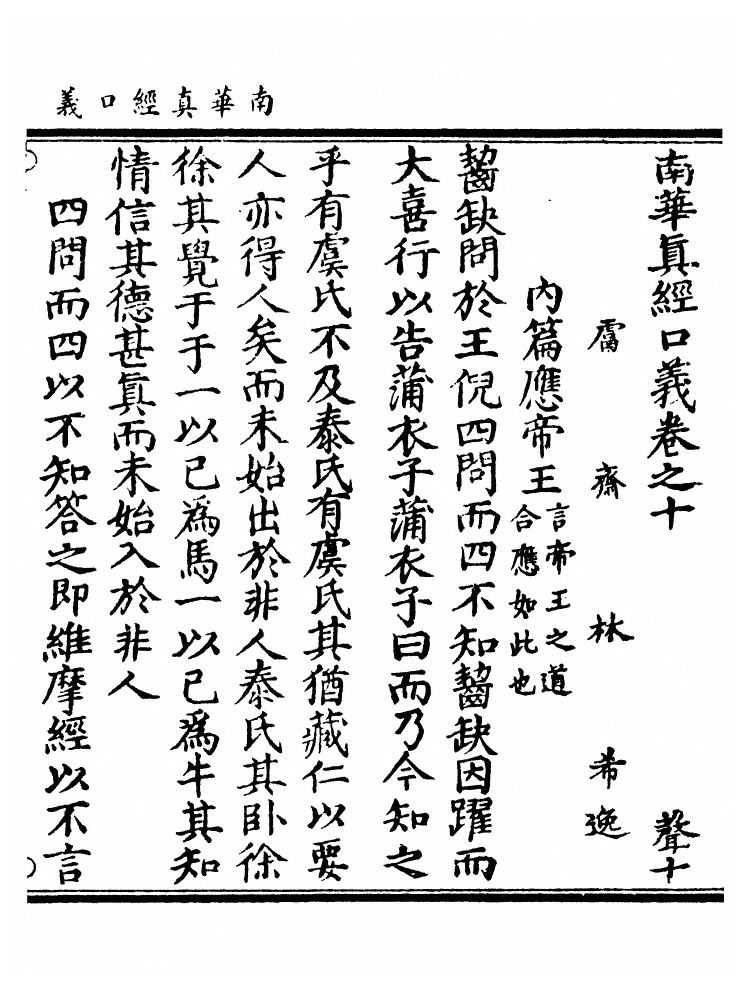 南華真經口義
南華眞經口義卷之十 聲十
鬳齋林希逸
內篇應帝王言帝王之道合應如此也
齧缺問於王倪四問而四不知齧缺因躍而
大喜行以告蒲衣子蒲衣子曰而乃今知之
乎有虞氏不及泰氏有虞氏其猶藏仁以要
人亦得人矣而未始出於非人泰氏其卧徐
徐其覺于于一以已爲馬一以已爲牛其知
情信其德甚眞而未始入於非人
四問而四以不知答之即維摩經以不言